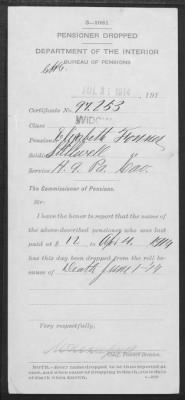 3—1081
PENSIONER DROPPED
DEPARTMENT OF THE INTERIOR
BUREAU OF PENSIONS
JUL 21 1914 , 191
Certificate No. 94.253
Class WIDOW
Pensioner Elizabeth
Soldier Stilwell
Service Pa. Cav.
The Commissioner of Pensions.
Sir:
I have the honor to report that the name of
the above-described pensioner who was last
paid at $ 12, to Apr 4, 1914
has this day been dropped from the roll be-
cause of Death June 1-14
Very respectfully,
Chief, Finance Division.
NOTE.—Every name dropped to be thus reported at
once, and when cause of dropping is death, state date
of death when known.